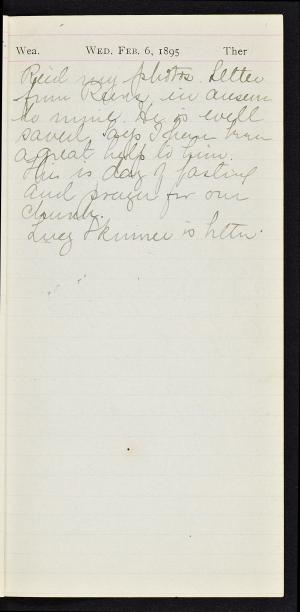 Wea. WED. FEB. 6, 1895 Ther
Rec'd my photos. Letter
from in answer
to mine. He is well
saved, says I have been
a great help to him.
This is day of fasting
and prayer for our
church.
Lucy Skinner is better.